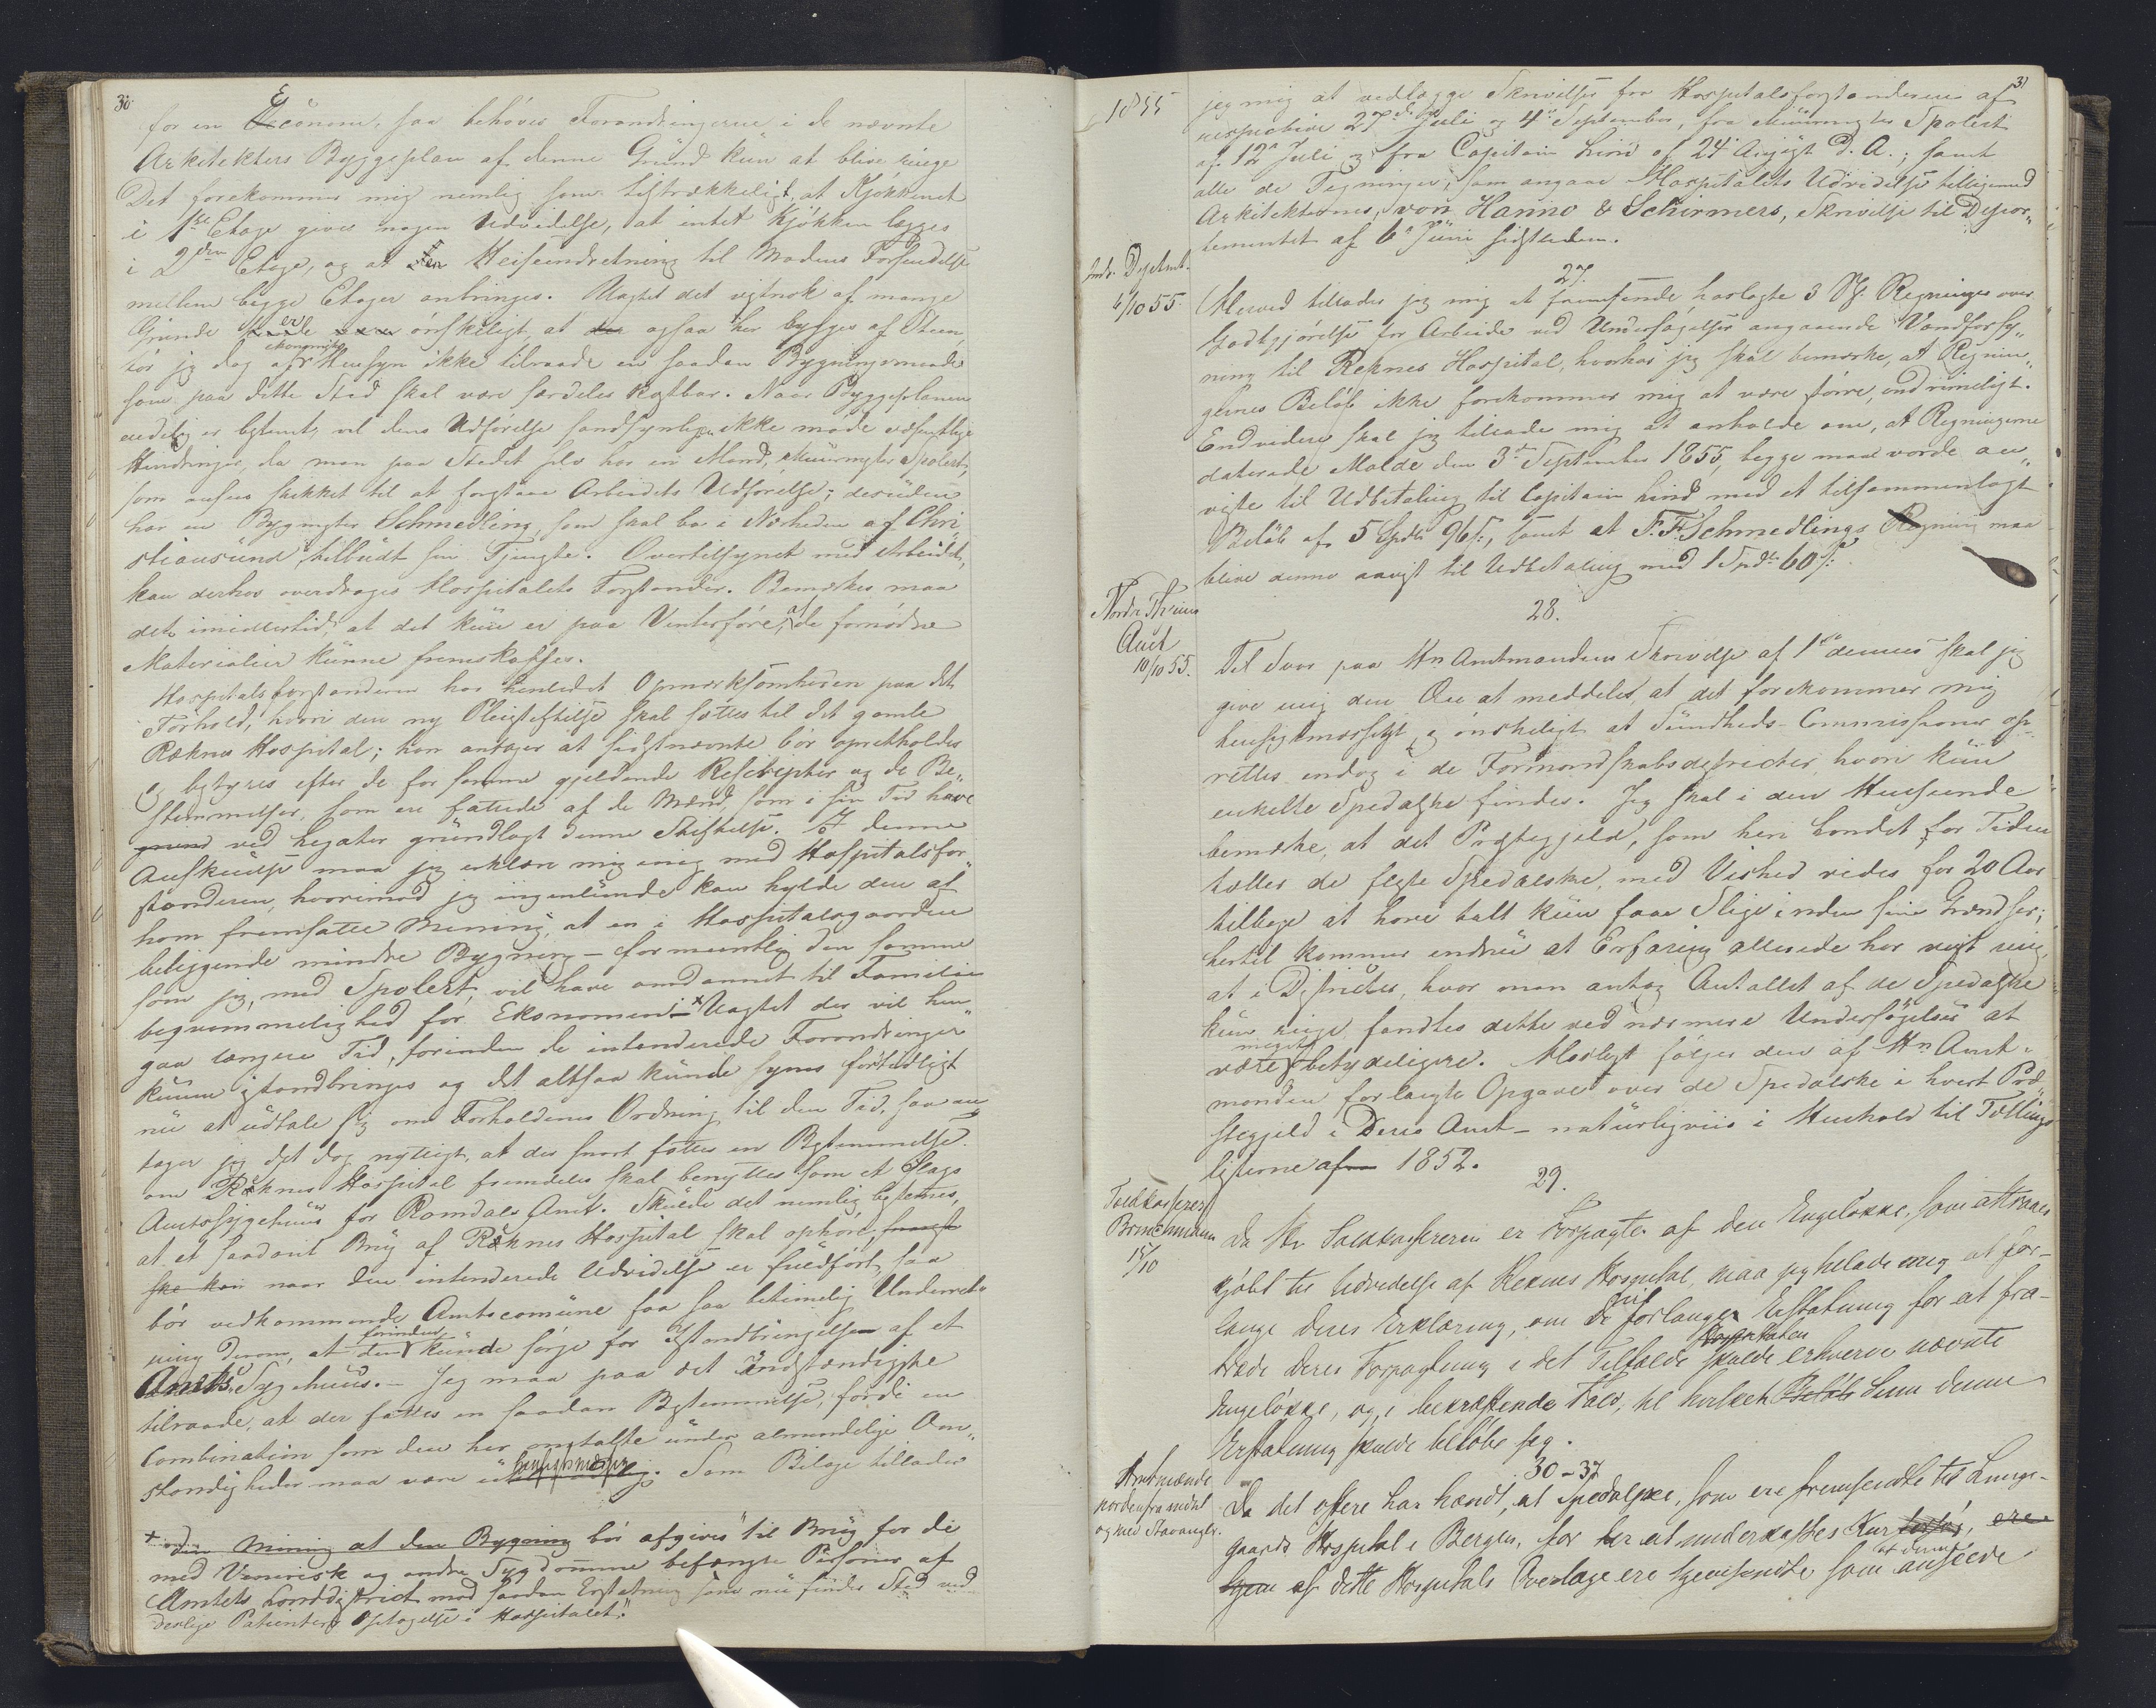 30
for en Econome, saa behøves Forandringerne i de nævnte
Arkitekters Byggeplan af denne Grund kun at blive ringe
Det forekommer mig nemlig som tilstrækkeligt, at Kjøkkenet
i 1ste Etage gives nogen Udvidelse, at intet Kjøkken lægges
i 2den Etage, og at en Heiseindretning til Madens Forsendelse
mellem begge Etager anbringes. Uagtet det vistnok af mange
Grunde er ønskeligt, at der ogsaa her bygges af Steen,
tør jeg dog af økonomiske Hensyn ikke tilraade en saadan Bygningsmaade
som paa dette Sted skal være særdeles kostbar. Naar Byggeplanen
endelig er bestemt, vil dens Udførelse sandsynligen ikke møde væsentlige
Hindringer, da man paa Stedet selv har en Mand, Muurmester Spolert,
som ansees skikket til at forestaae Arbeidets Udførelse; desuden
har en Bygmester Schmedling, som skal bo i Nærheden af Chri-
stiansund, tilbudt sin Tjeneste. Overtilsynet med Arbeidet,
kan derhos overdrages Hospitalets Forstander. Bemærkes maa
det imidlertid, at det kun er paa Vinterføre, at de fornødne
Materialier kunne fremskaffes.
Hospitalsforstanderen har henledet Opmærksomheden paa det
Forhold, hvori den ny Pleiestiftelse skal sættes til det gamle
Reknes Hospital; han antager at sidstnævnte bør opretholdes
og bestyres efter de for samme gjeldende Rescripter og de Be-
stemmelser, som ere fattede af de Mænd, som i sin Tid have
grund ved Legater grundlagt denne Stiftelse. I denne
Anskuelse maa jeg erklære mig enig med Hospitalsfor-
standeren, hvorimod jeg ingenlunde kan hylde den af
ham fremsatte Mening, at en i Hospitalsgaarden
beliggende mindre Bygning – formeentlig den samme
som jeg, med Spolert, vil have omdannet til Familie
beqvemmelighed for Ekonomen – x Uagtet der vil hen
gaa længere Tid, forinden de intenderede Forandringer
kunne istandbringes og det altsaa kunde synes fortidligt
nu at udtale sig om Forholdenes Ordning til den Tid, saa an
tager jeg det dog nyttigt, at der snart fattes en Bestemmelse
om Reknes Hospital fremdeles skal benyttes som et Slags
Amtssygehuus for Romsdals Amt. Skulde det nemlig bestemmes,
at et saadant Brug af Reknes Hospital skal ophøre,
naar den intenderede Udvidelse er fuldført, saa
bør vedkommende Amtscomune faa saa betimelig Underret-
ning derom, at den forinden kunde sørge for Istandbringelsen af et
Amts Sygehuus. – Jeg maa paa det Indstændigste
tilraade, at der fattes en saadan Bestemmelse, fordi en
Combination som den her omtalte under almindelige Om-
stændigheder maa være uhensigtsmæssig. Som Bilage tillader
x den Mening at den Bygning bør afgives "til Brug for de
med Venerisk og andre Sygdomme befængte Personer af
Amtets Landdistrict mod saadan Erstatning som nu finder Sted ved
deslige Patienters Optagelse i Hospitalet."
31
1855
jeg mig at vedlægge Skrivelser fra Hospitalsforstanderen af
respective 27de Juli og 4de September, fra Muurmester Spolert
af 12te Juli og fra Capitain Lund af 24de August d. A.; samt
alle de Tegninger, som angaae Hospitalets Udvidelse tilligemed
Arkitekternes, von Hanno & Schirmers, Skrivelse til Depar-
tementet af 6te Juni sidstleden.
27.
Indr. Dptmt.
6/10 55.
Herved tillader jeg mig at fremsende hoslagte 3 St. Regninger over
Godtgjørelse for Arbeide ved Undersøgelser angaaende Vandforsy-
ning til Reknes Hospital, hvorhos jeg skal bemærke, at Regnin-
gernes Beløb ikke forekommer mig at være større, end rimeligt.
Endvidere skal jeg tillade mig at anholde om, at Regningerne
daterede Molde den 3die September 1855, begge maae vorde an-
viste til Udbetaling til Capitain Lund med et tilsammenlagt
Beløb af 5 Spdlr 96 s:, samt at F. F. Schmedlings Regning maa
blive denne anvist til Udbetaling med 1 Spdlr 60 s:
28.
Nordre Throndhj
Amt
10/10 55.
Til Svar paa Hr Amtmandens Skrivelse af 1ste dennes skal jeg
give mig den Ære at meddele, at det forekommer mig
hensigtsmæssigt og ønskeligt at Sundheds-Commissioner op-
rettes endog i de Formandskabsdistricter, hvori kun
enkelte Spedalske findes. Jeg skal i den Henseende
bemærke, at det Præstegjeld, som her i Landet for Tiden
tæller de fleste Spedalske, med Vished vides for 20 Aar
tilbage at have talt kun faae Slige inden sine Grændser;
hertil kommer endnu at Erfaring allerede har viist mig,
at i Districter, hvor man antog Antallet af de Spedalske
kun ringe, fandtes dette ved nærmere Undersøgelser at
være meget betydeligere. Hoslagt følger den af Hr. Amt-
manden forlangte Opgave over de Spedalske i hvert Præ-
stegjeld i Deres Amt – naturligviis i Henhold til Tællings
listerne af 1852.
29.
Toldkasserer
Bornemann
15/10
Da Hr Toldkassereren er Forpagter af den Engeløkke, som attraaes
kjøbt til Udvidelse af Reknes Hospital, maa jeg tillade mig at for-
lange Deres Erklæring, om De vil forlange Erstatning for at fra-
træde Deres Forpagtning i det Tilfælde Hospitalet skulde erhverve nævnte
Engeløkke, og, i bekræftende Fald, til hvilken Beløb Sum denne
Erstatning skulde beløbe sig.
30 – 37
Amtmændene
nordenfra indtil
og med Stavanger.
Da det oftere har hændt, at Spedalske, som ere fremsendte til Lunge-
gaards Hospital i Bergen, for der at underkastes Kur, ere
af dette Hospitals Overlæge ere hjemsendte som af denne ansеede